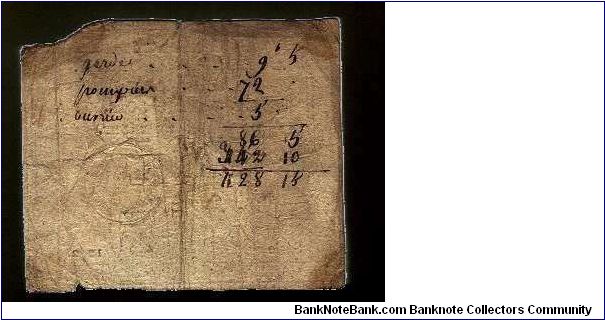 garde . . . 9 5
pompiers . . 72
. . . 5
86 5
442 10
428 15
BankNoteBank.com Banknote Collectors Community